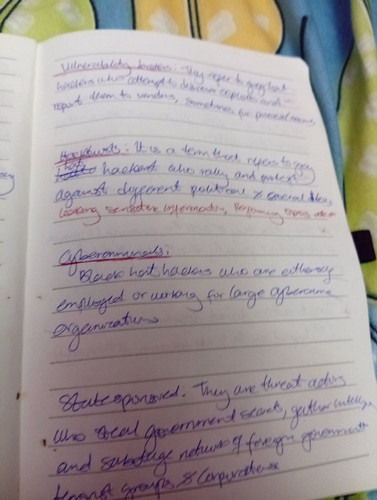 Vulnerability brokers: They refer to grey hat
hackers who attempt to discover exploits and
report them to vendors, sometimes for prizes
Hacktivists: It is a term that refers to grey
hat hackers who rally and protest
against different political & social ideas,
leaking sensitive information,
Cybercriminals:
Black hat hackers who are either
employed or working for large cybercrime
organizations
State sponsored: They are threat actors
who steal government secrets, gather
and sabotage networks of foreign governments
terrorist groups, & Corporations